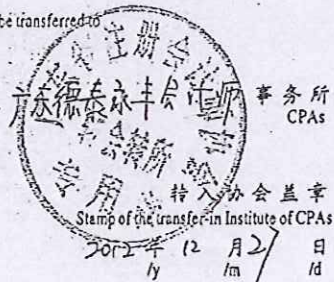 be transferred to
广东德泰永丰会计师 事务所
CPAs
转入协会盖章
Stamp of the transfer-in Institute of CPAs
2012年 12 月 21 日
/y /m /d